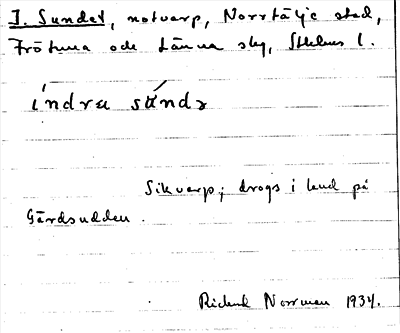 I. Sundet, notvarp, Norrtälje stad,
Frötuna och Länna skg, Sthlms l.
índra súndə
Sikvarp; drogs i land på
Gärdsudden.
Rickard Norrman 1934.